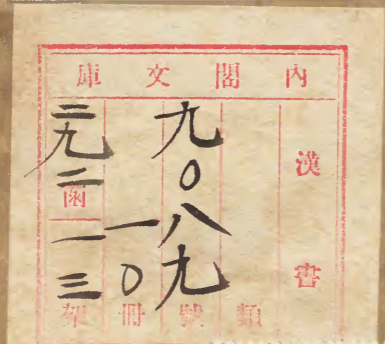 內閣文庫
漢書
類
九〇八九號
一〇冊
二九二函
一三架